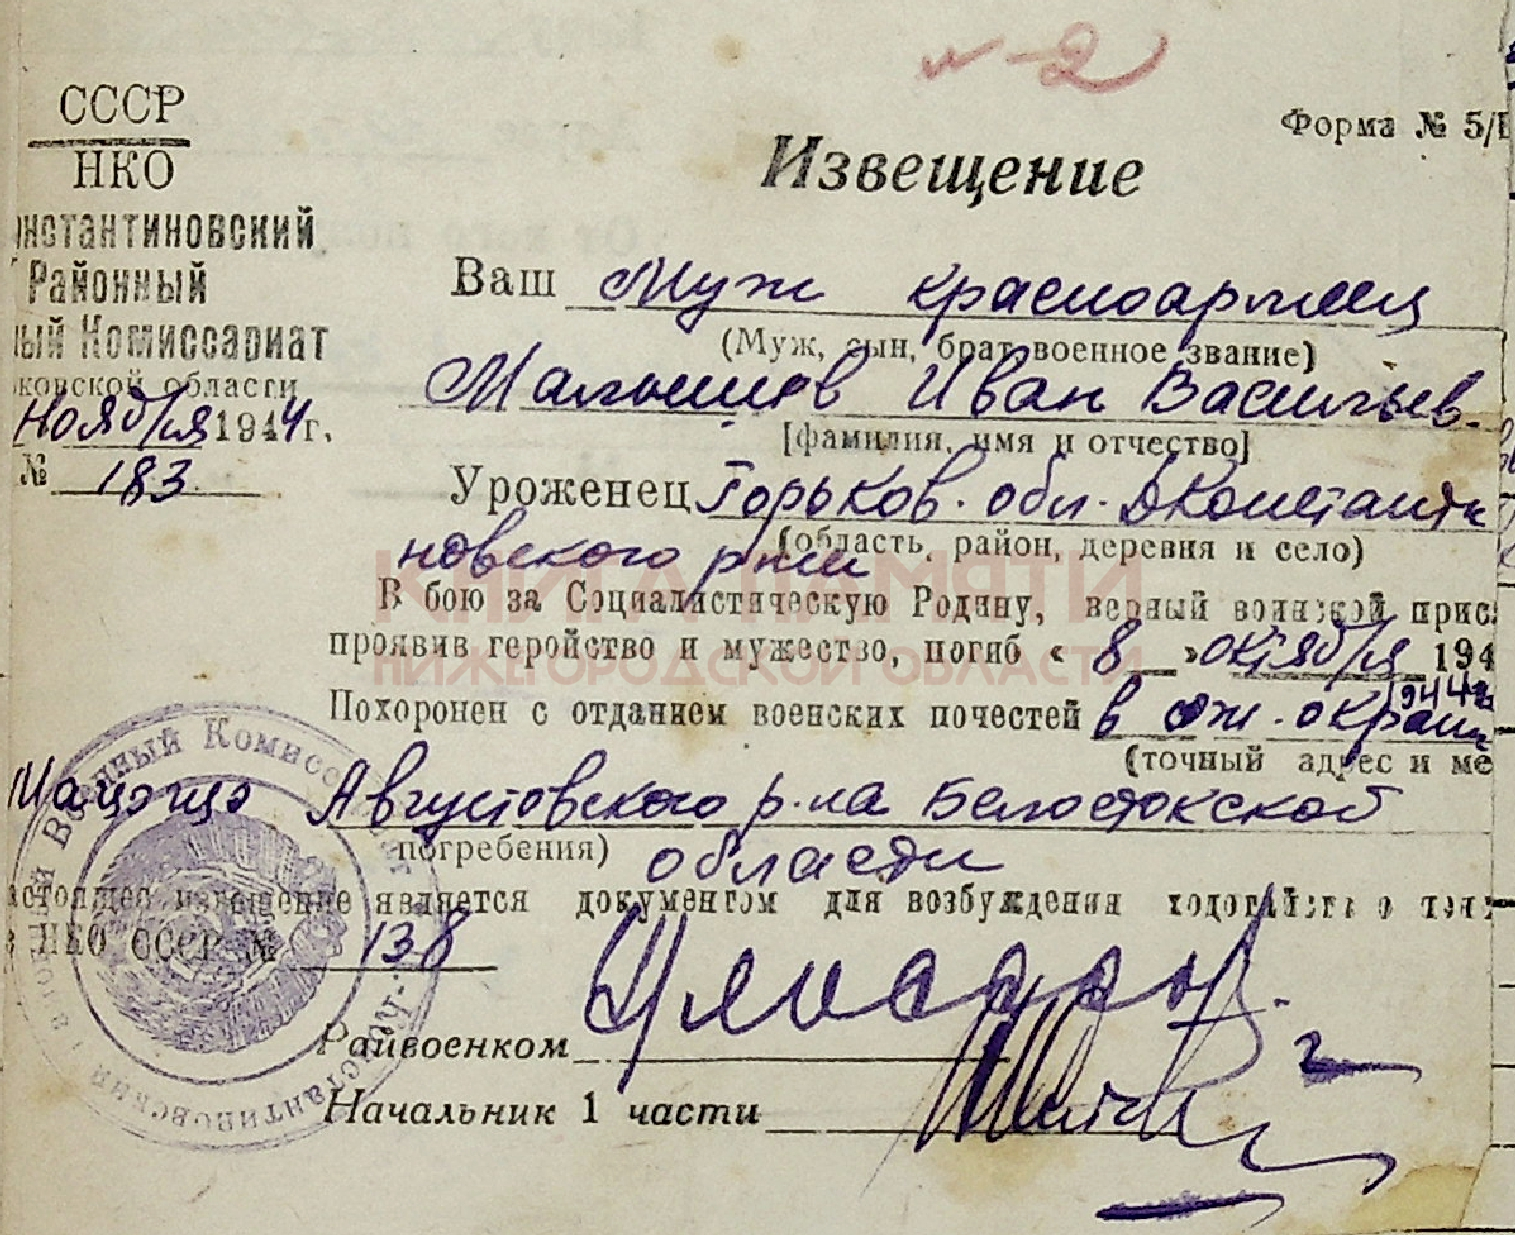 № 2
Форма № 5/
СССР
НКО
нстантиновский
Районный
ый Комиссариат
ковской области
Ноября 1944 г.
№ 183
Извещение
Ваш Муж красноармеец
(Муж, сын, брат военное звание)
Малышев Иван Васильев.
[фамилия, имя и отчество]
Уроженец Горьков. обл. ДКонстанти
новского р-на
(область, район, деревня и село)
КНИГА ПАМЯТИ
НИЖЕГОРОДСКОЙ ОБЛАСТИ
В бою за Социалистическую Родину, верный воинской прис
проявив геройство и мужество, погиб « 8 » октября 194
1944г
Похоронен с отданием военских почестей в юж. окраин
(точный адрес и ме
Августовского р-на Белостокской
погребения) области
стоящее извещение является документом для возбуждения ходатайства о пен
НКО СССР № 138
Райвоенком
Начальник 1 части
Военный Комисс
Константиновский